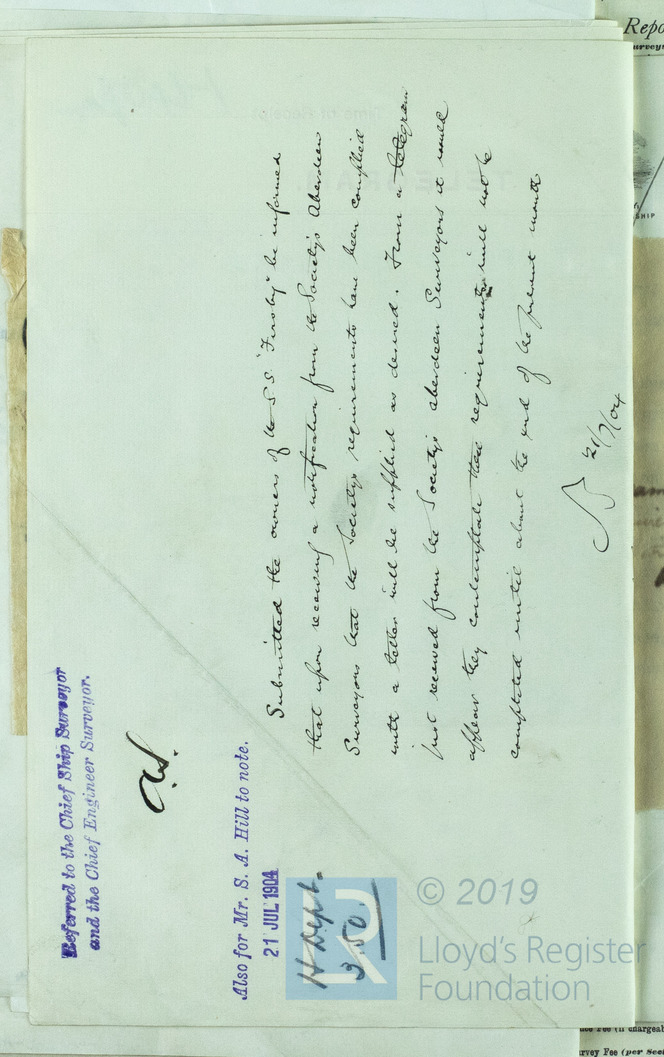 Referred to the Chief Ship Surveyor
and the Chief Engineer Surveyor.
Also for Mr. S. A. Hill to note.
21 JUL 1904
H Dept.
3.50.
Submitted the owners of the SS "Firsby" be informed
that upon receiving a notification from the Society's Aberdeen
Surveyors that the Society's requirements have been complied
with a letter will be supplied as desired. From a telegram
just received from the Society's Aberdeen Surveyors it would
appear they contemplate these requirements will not be
completed until about the end of the present month
21/7/04
TELEGRAM.
Time of Receipt
Repo
urveyr
SHIP
© 2019
Lloyd's Register
Foundation
LR
nce Fee (if chargeab
rvey Fee (per Sec